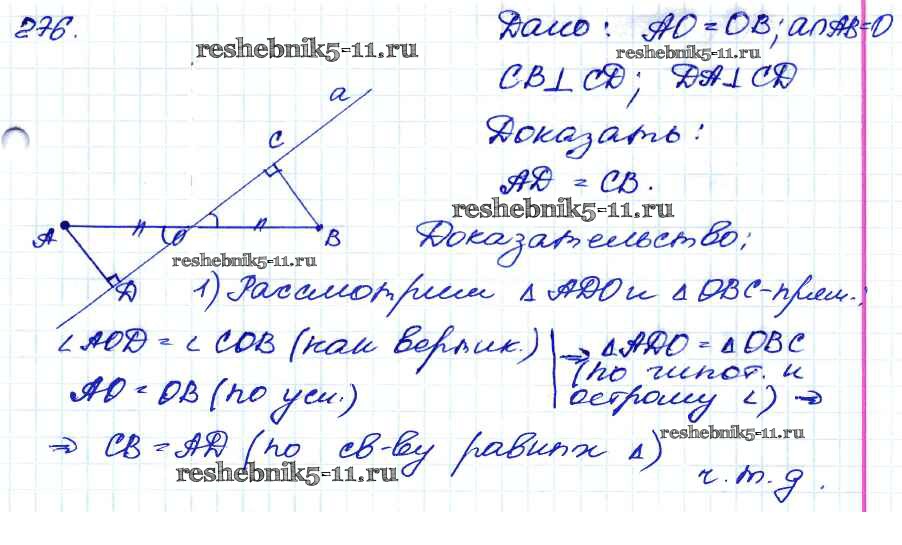 276.
Дано: AO = OB; a∩AB=O
CB⊥CD; DA⊥CD
Доказать:
AD = CB.
Доказательство:
a
C
A
O
B
D
1) Рассмотрим △ADO и △OBC-прям.;
∠AOD = ∠COB (как вертик.)
AO = OB (по усл.)
⇒ △ADO = △OBC
(по гипот. и
острому ∠) ⇒
⇒ CB = AD (по св-ву равных △)
ч.т.д.
reshebnik5-11.ru
reshebnik5-11.ru
reshebnik5-11.ru
reshebnik5-11.ru
reshebnik5-11.ru
reshebnik5-11.ru